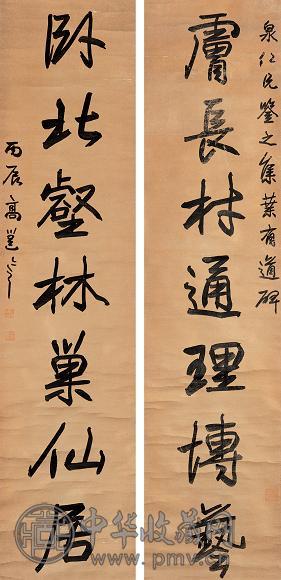 泉仁兄鑒之集葉有道碑
膚長材通理博藝
臥北壑林巢仙居
丙辰高邕之
中华收藏网
www.pmv.cn